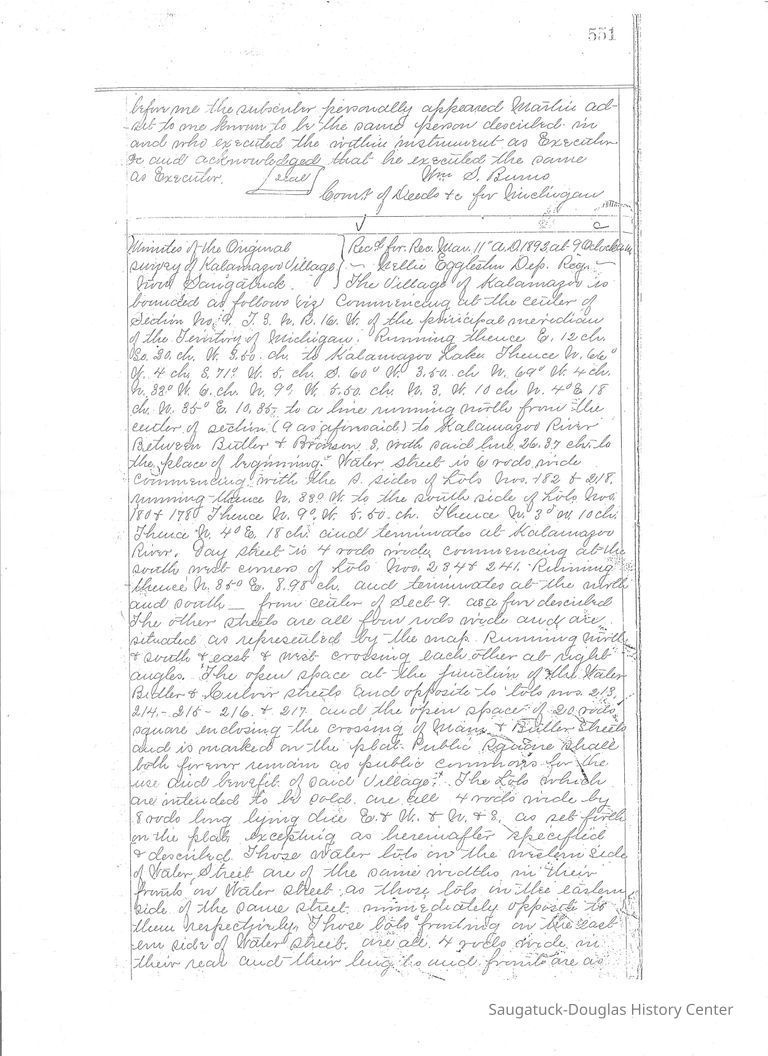 551
before me the subscriber personally appeared Martin ad-
sit to me known to be the same person described in
and who executed the within instrument as Executor
&c and acknowledged that he executed the same
as Executor. Seal Wm S. Burns
Com't of Deeds &c for Michigan
Minutes of the Original
survey of Kalamazoo Village
now Saugatuck.
Recd for Rec. Mar. 11" A.D. 1892 at 9 Oclock a.m.
Nellie Eggleston Dep. Reg.
The Village of Kalamazoo is
bounded as follows viz Commencing at the center of
Section No. 9. T. 3. N. R. 16. W. of the principal meridian
of the Territory of Michigan. Running thence E. 12 ch.
So. 20 ch. W. 3.50. ch. to Kalamazoo Lake Thence N. 66°
W. 4 ch S. 71° W. 5 ch. S. 60° W. 3.50. ch N. 69° W. 4 ch.
N. 33° W. 6. ch. N. 9°. W. 5.50. ch. N. 3. W. 10 ch N. 4° E 18
ch. N. 35° E. 10.35. to a line running north from the
center of section (9 as aforesaid) to Kalamazoo River
Between Butler & Bronson S. with said line 26.37 ch to
the place of beginning. Water Street is 6 rods wide
commencing with the S. sides of Lots Nos. 182 & 218.
running thence N. 33° W. to the south side of Lots Nos.
180 & 178 Thence N. 9° W. 5.50 ch. Thence N. 3° W 10 ch.
Thence N. 4° E. 18 ch. and terminates at Kalamazoo
River. Day street is 4 rods wide, commencing at the
south west corners of Lots Nos. 234 & 241. Running
thence N. 35° E. 8.98 ch. and terminates at the north
and south _ from center of Sect 9. as afore described
The other streets are all four rods wide and are
situated as represented by the map. Running north
& south & east & west crossing each other at right
angles. The open space at the junction of the Water
Butler & Culver streets and opposite to lots nos. 213,
214.- 215- 216. & 217. and the open space of 20 rods
square enclosing the crossing of Main & Butler Streets
and is marked on the plat Public Square shall
both forever remain as public commons for the
use and benefit of said Village. The Lots which
are intended to be sold are all 4 rods wide by
8 rods long lying due E. & W. & N. & S. as set forth
on the plat, excepting as hereinafter specified
& described. Those Water lots on the western side
of Water Street are of the same widths in their
fronts on Water street as those lots in the eastern
side of the same street immediately opposite to
them respectively. Those lots fronting on the east
ern side of Water street are all 4 rods wide in
their rear and their lengths and fronts are as
Saugatuck-Douglas History Center